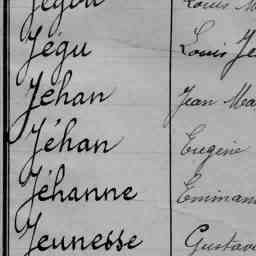 Jégou Louis M
Jégu Louis Je
Jehan Jean Ma
Jéhan Eugène
Jéhanne Emman
Jeunesse Gustav